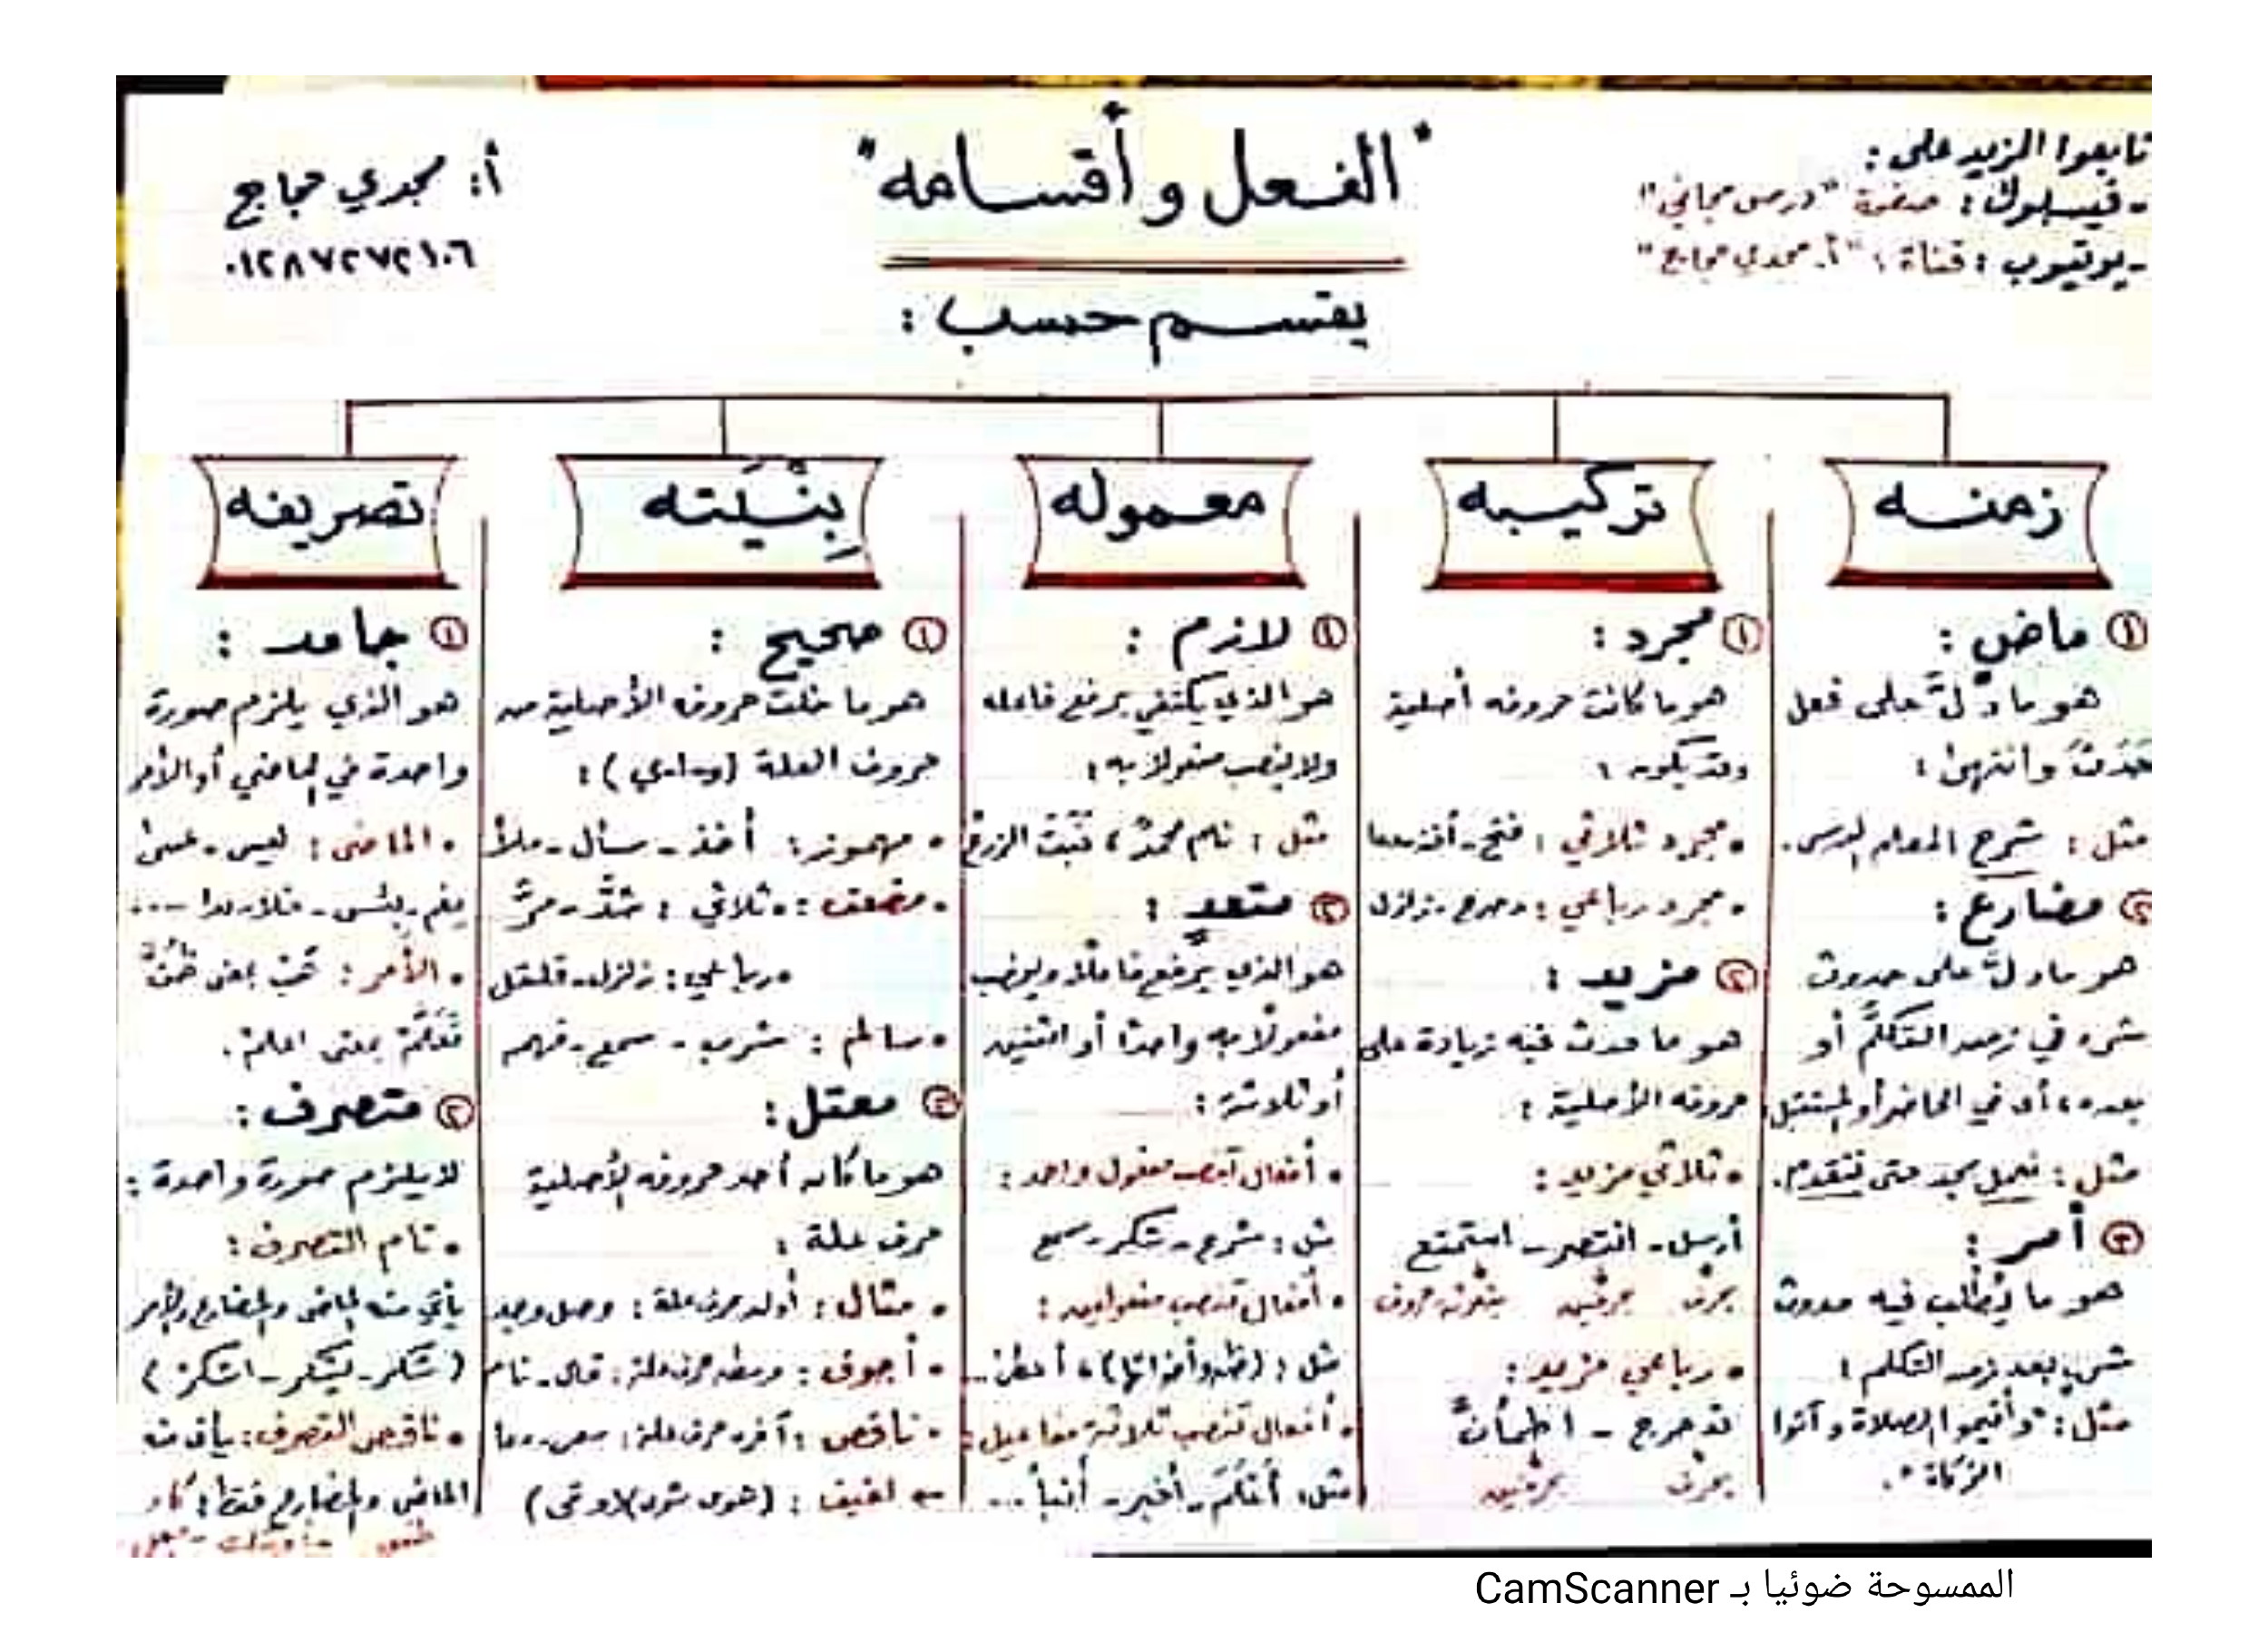 تابعوا المزيد على:
- فيسبوك: صفحة "درس مجاني"
- يوتيوب: قناة: "أ. مجدي حجاج"
"الفعل وأقسامه"
أ: مجدي حجاج
٠١٢٨٧٢٧٢١٠٦
يقسم حسب:
زمنه
① ماضٍ:
هو ما دلَّ على فعل
حَدَثَ وانتهى:
مثل: شرح المعلم الدرس.
② مضارع:
هو ما دلَّ على حدوث
شيء في زمن التكلُّم أو
بعده، أي في الحاضر أو المستقبل
مثل: نعمل بجد حتى نتقدم.
③ أمر:
هو ما يُطلب فيه حدوث
شيء بعد زمن التكلم:
مثل: "وأقيموا الصلاة وآتوا
الزكاة".
تركيبه
① مجرد:
هو ما كانت حروفه أصلية
وقد يكون:
• مجرد ثلاثي: فتح - أخذ - دعا
• مجرد رباعي: دحرج - زلزل
② مزيد:
هو ما حدث فيه زيادة على
حروفه الأصلية:
• ثلاثي مزيد:
أرسل - انتصر - استمتع
بحرف بحرفين بثلاثة حروف
• رباعي مزيد:
تدحرج - اطمأنَّ
بحرف بحرفين
معموله
① لازم:
هو الذي يكتفي برفع فاعله
ولا ينصب مفعولا به:
مثل: نام محمدٌ، نَبَتَ الزرعُ
② متعدٍ:
هو الذي يرفع فاعلًا وينصب
مفعولًا به واحدًا أو اثنين
أو ثلاثة:
• أفعال تنصب مفعول واحد:
مثل: شرح - شكر - سمع
• أفعال تنصب مفعولين:
مثل: (ظن وأخواتها)، أعطى...
• أفعال تنصب ثلاثة مفاعيل:
مثل: أَعْلَمَ - أخبر - أنبأ ...
بِنْيَته
① صحيح:
هو ما خلت حروفه الأصلية من
حروف العلة (و-ا-ي):
• مهموز: أخذ - سأل - ملأ
• مضعف: • ثلاثي: شدَّ - مرَّ
• رباعي: زلزل - قلقل
• سالم: شرب - سمع - فهم
② معتل:
هو ما كان أحد حروفه الأصلية
حرف علة:
• مثال: أوله حرف علة: وصل وجد
• أجوف: وسطه حرف علة: قال - نام
• ناقص: آخره حرف علة: سعى - دعا
لفيف:
تصريفه
① جامد:
هو الذي يلزم صورة
واحدة في الماضي أو الأمر
• الماضي: ليس - عسى
نِعْم - بئس - خلا - عدا - ...
• الأمر: هَبْ بمعنى ظُنَّ
تَعَلَّمْ بمعنى اعلمْ.
② متصرف:
لا يلزم صورة واحدة:
• تام التصرف:
يأتي منه الماضي والمضارع والأمر
(شكر - يشكر - اشكر)
• ناقص التصرف: يأتي منه
الماضي والمضارع فقط: كاد
الممسوحة ضوئيا بـ CamScanner